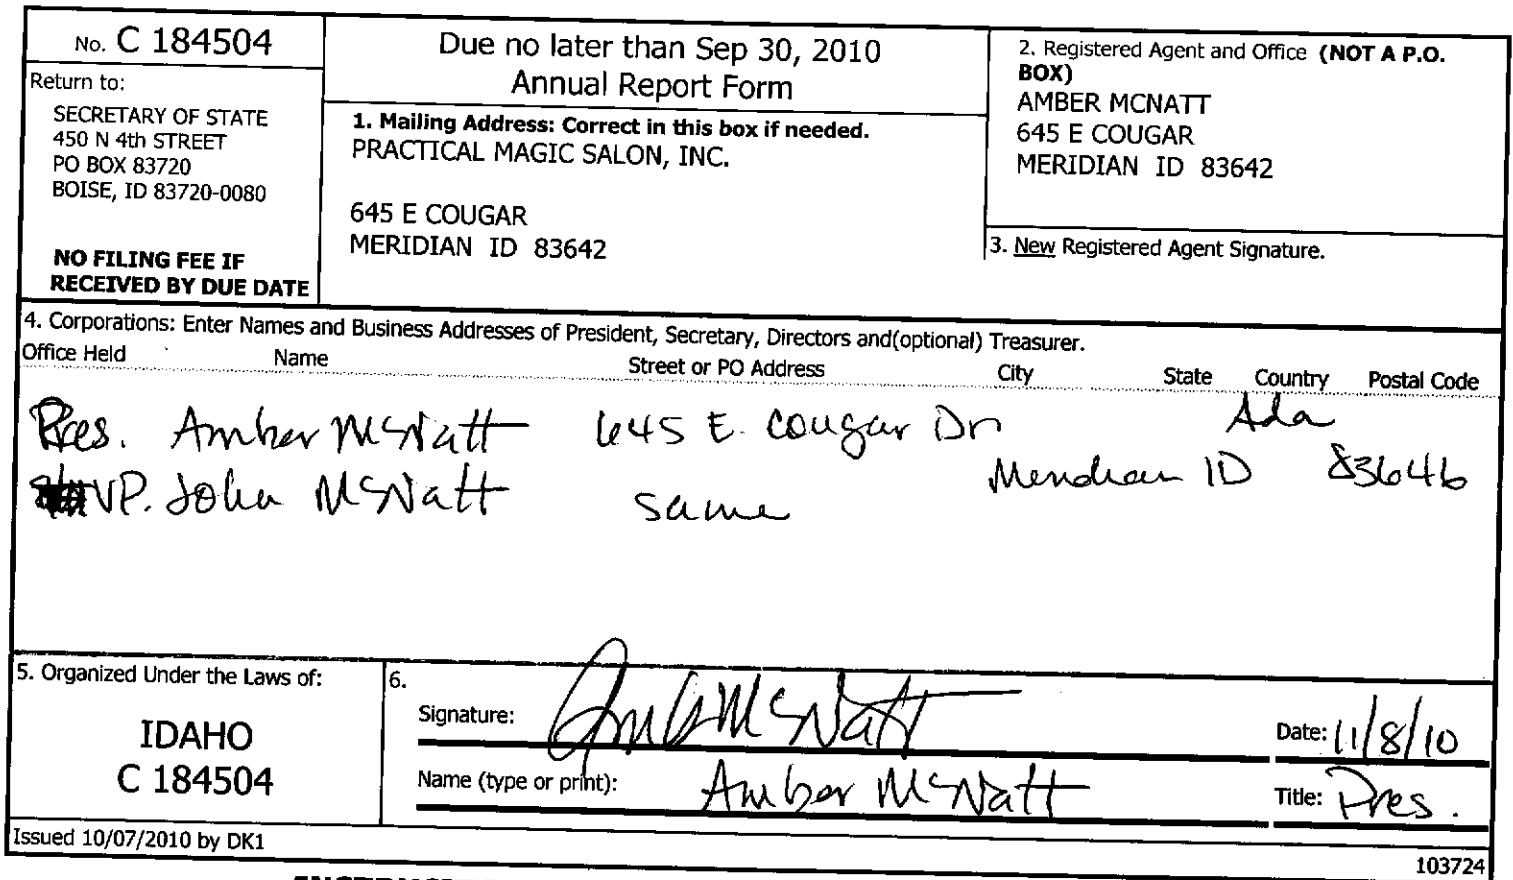 No. C 184504
Return to:
SECRETARY OF STATE
450 N 4th STREET
PO BOX 83720
BOISE, ID 83720-0080
NO FILING FEE IF
RECEIVED BY DUE DATE
Due no later than Sep 30, 2010
Annual Report Form
1. Mailing Address: Correct in this box if needed.
PRACTICAL MAGIC SALON, INC.
645 E COUGAR
MERIDIAN ID 83642
2. Registered Agent and Office (NOT A P.O.
BOX)
AMBER MCNATT
645 E COUGAR
MERIDIAN ID 83642
3. New Registered Agent Signature.
4. Corporations: Enter Names and Business Addresses of President, Secretary, Directors and(optional) Treasurer.
Office Held Name Street or PO Address City State Country Postal Code
Pres. Amber McNatt 645 E. Cougar Dr Ada
Meridian ID 83646
VP. John McNatt same
5. Organized Under the Laws of:
IDAHO
C 184504
6.
Signature: Amber McNatt Date: 11/8/10
Name (type or print): Amber McNatt Title: Pres.
Issued 10/07/2010 by DK1
103724